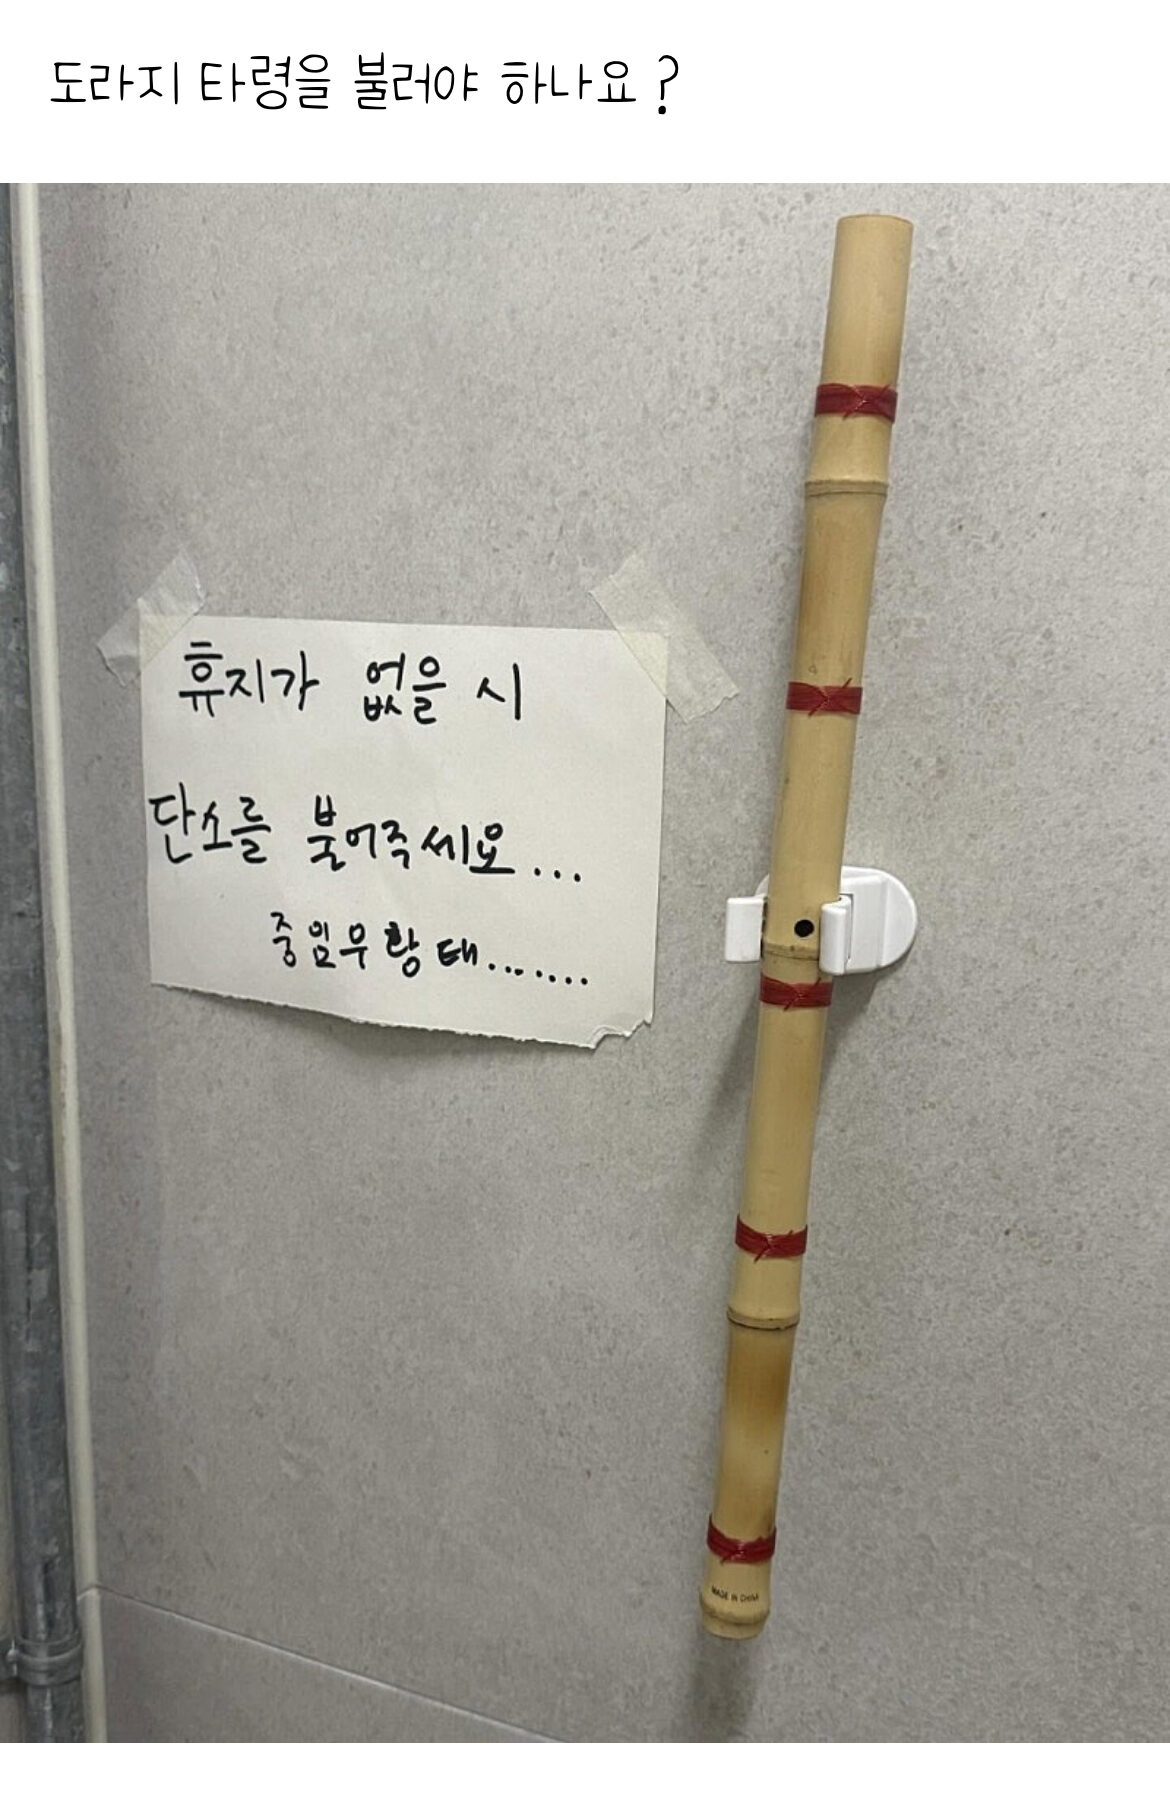 도라지 타령을 불러야 하나요?
휴지가 없을 시
단소를 불어주세요...
중임무황태.......
MADE IN CHINA